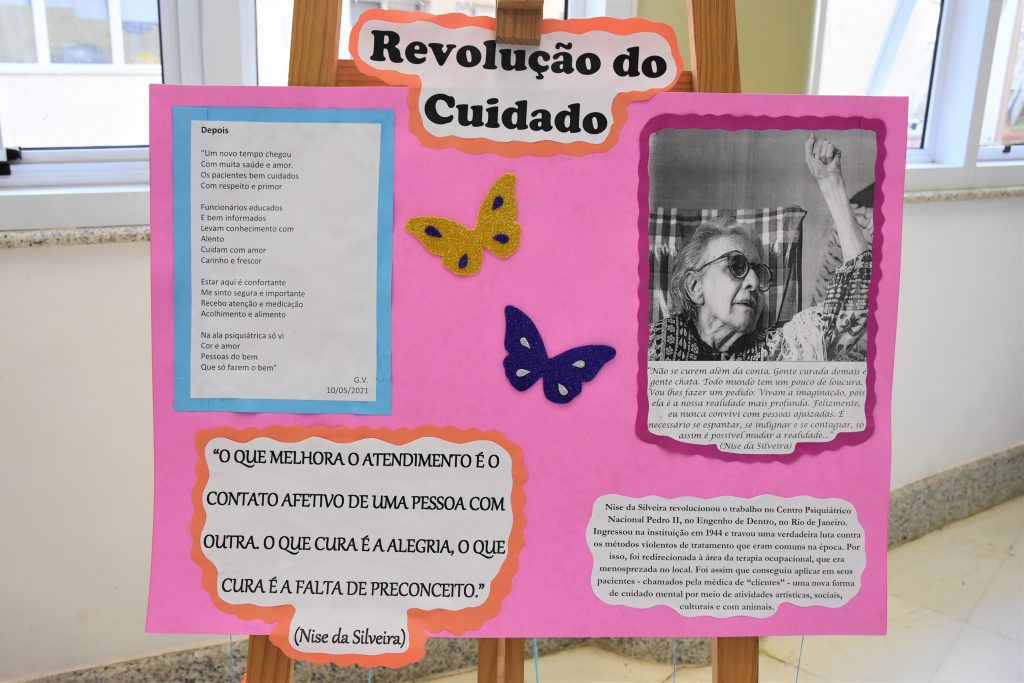 Revolução do
Cuidado
Depois
"Um novo tempo chegou
Com muita saúde e amor.
Os pacientes bem cuidados
Com respeito e primor
Funcionários educados
E bem informados
Levam conhecimento com
Alento
Cuidam com amor
Carinho e frescor
Estar aqui é confortante
Me sinto segura e importante
Recebo atenção e medicação
Acolhimento e alimento
Na ala psiquiátrica só vi
Cor e amor
Pessoas do bem
Que só fazem o bem"
G.V.
10/05/2021
"Não se curem além da conta. Gente curada demais é
gente chata. Todo mundo tem um pouco de loucura.
Vou lhes fazer um pedido: Vivam a imaginação, pois
ela é a nossa realidade mais profunda. Felizmente,
eu nunca convivi com pessoas ajuizadas. É
necessário se espantar, se indignar e se contagiar, só
assim é possível mudar a realidade..."
(Nise da Silveira)
"O QUE MELHORA O ATENDIMENTO É O
CONTATO AFETIVO DE UMA PESSOA COM
OUTRA. O QUE CURA É A ALEGRIA, O QUE
CURA É A FALTA DE PRECONCEITO."
(Nise da Silveira)
Nise da Silveira revolucionou o trabalho no Centro Psiquiátrico
Nacional Pedro II, no Engenho de Dentro, no Rio de Janeiro.
Ingressou na instituição em 1944 e travou uma verdadeira luta contra
os métodos violentos de tratamento que eram comuns na época. Por
isso, foi redirecionada à área da terapia ocupacional, que era
menosprezada no local. Foi assim que conseguiu aplicar em seus
pacientes - chamados pela médica de "clientes" - uma nova forma
de cuidado mental por meio de atividades artísticas, sociais,
culturais e com animais.